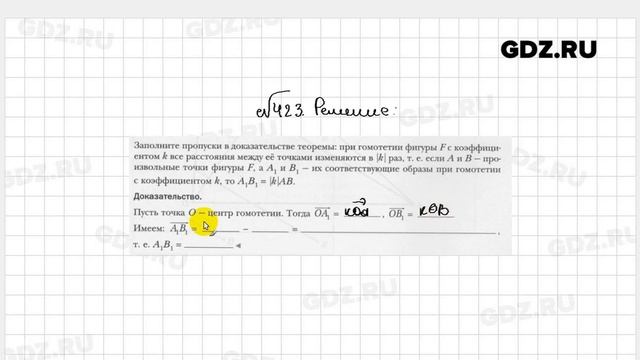 GDZ.RU
№423. Решение:
Заполните пропуски в доказательстве теоремы: при гомотетии фигуры F с коэффици-
ентом k все расстояния между её точками изменяются в |k| раз, т. е. если A и B – про-
извольные точки фигуры F, а A₁ и B₁ – их соответствующие образы при гомотетии
с коэффициентом k, то A₁B₁ = |k|AB.
Доказательство.
Пусть точка O – центр гомотетии. Тогда OA₁ = kOA, OB₁ = kOB
Имеем: A₁B₁ = ______ – ______ = ______________________,
т. е. A₁B₁ = ________ ◄